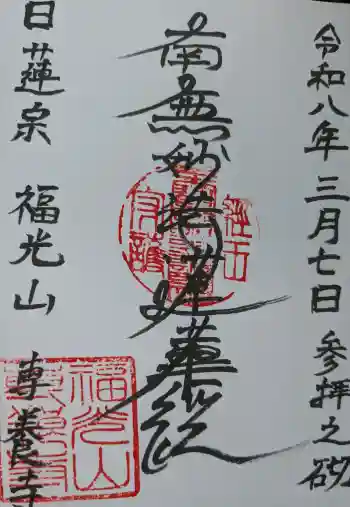 令和八年三月七日 参拝之砌
南無妙法蓮華経
日蓮宗 福光山 専養寺